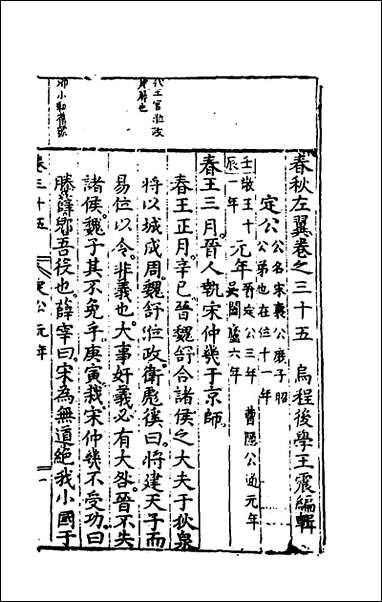 春秋左翼卷之三十五　烏程後學王震編輯
定公公名宋襄公庶子昭公弟也在位十一年
壬辰敬王十一年元年晉定公三年吳闔廬六年曹隱公通元年
春王三月晉人執宋仲幾于京師
春王正月辛巳晉魏舒合諸侯之大夫于狄泉
將以城成周魏舒涖政衛彪傒曰將建天子而
易位以令非義也大事奸義必有大咎晉不失
諸侯魏子其不免乎庚寅栽宋仲幾不受功曰
滕薛郳吾役也薛宰曰宋為無道絕我小國于
卷三十五
定公元年
一
代王官涖政